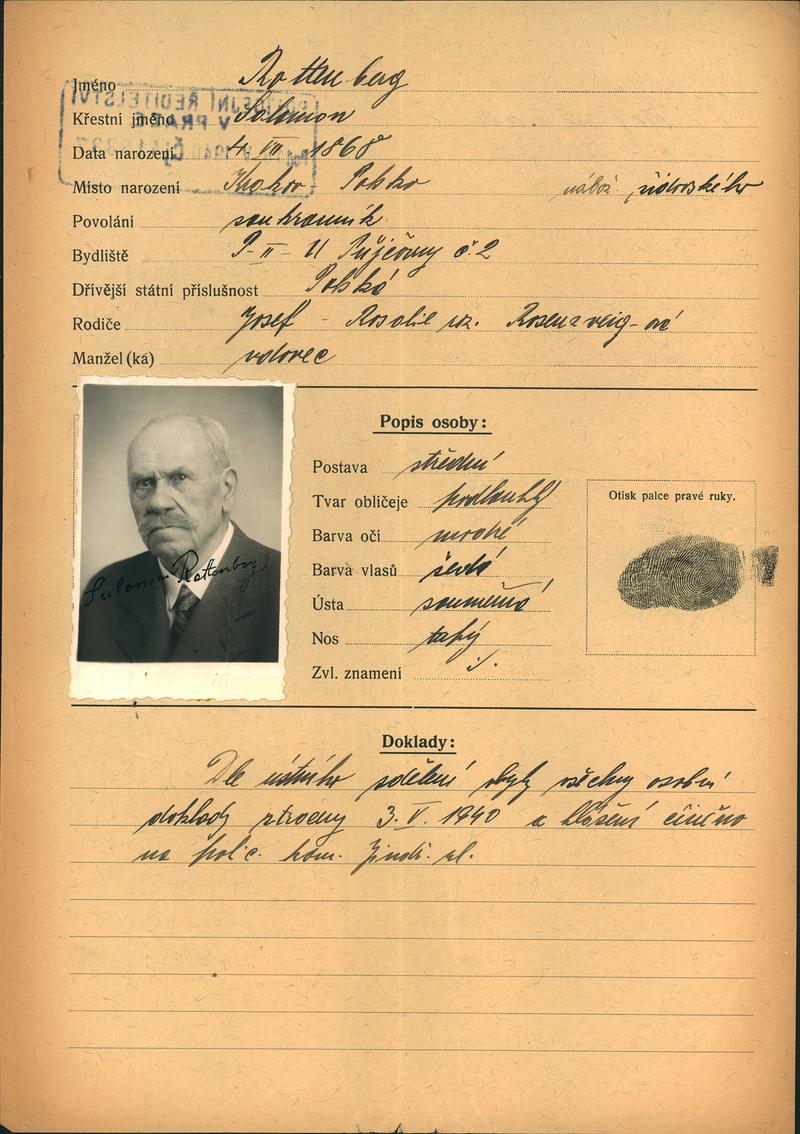 Jméno Rottenberg
Křestní jméno Salomon
Data narození 4. VII. 1868
Místo narození Krakov - Polsko nábož. židovského
Povolání soukromník
Bydliště P-II- U Půjčovny č. 2
Dřívější státní příslušnost Polská
Rodiče Josef - Rosalie roz. Rosenzveig-ová
Manžel (ka) vdovec
Popis osoby:
Postava střední
Tvar obličeje podlouhlý
Barva očí modré
Barva vlasů šedá
Ústa souměrná
Nos tupý
Zvl. znamení ./.
Otisk palce pravé ruky.
Salomon Rottenberg
Doklady:
Dle ústního sdělení byly všechny osobní
doklady ztraceny 3. V. 1940 a hlášení činěno
na polic. kom. Jindř. ul.